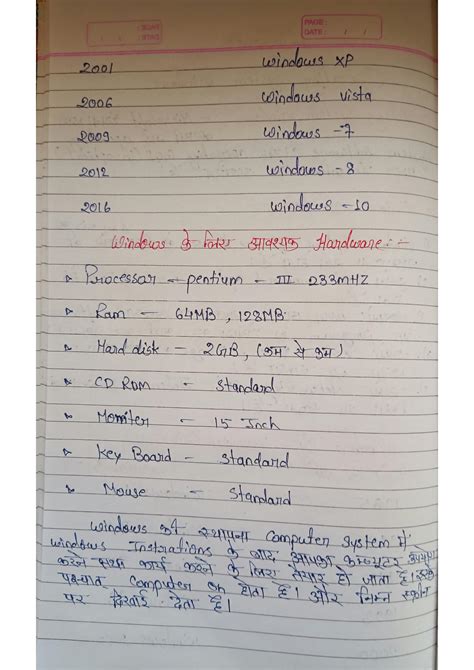 PAGE :
DATE : / /
2001 Windows XP
2006 Windows Vista
2009 Windows -7
2012 Windows -8
2016 Windows -10
Windows के लिए आवश्यक Hardware :-
Processar - pentium - III 233mHZ
Ram - 64MB , 128MB
Hard disk - 2GB, (कम से कम)
CD ROM - Standard
Moniter - 15 Inch
Key Board - Standard
Mouse - Standard
Windows की स्थापना Computer System में
Windows के बाद आपका कम्प्यूटर
करने कार्य करने के लिए तैयार हो जाता है।
पश्चात Computer on होता है। और निम्न स्क्रीन
पर दिखाई देता है।